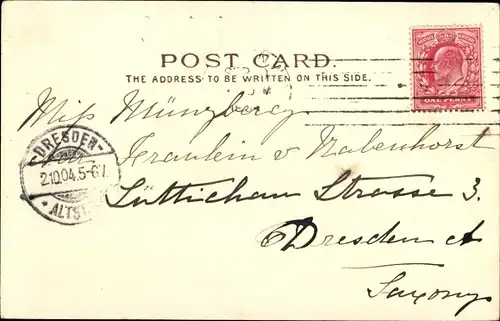 POST CARD.
THE ADDRESS TO BE WRITTEN ON THIS SIDE.
ONE PENNY
Miss Münzberg
Fräulein v Rabenhorst
DRESDEN
2.10.04.5-6V.
* ALTST.
Lüttichau Strasse 3.
Dresden A
Saxony